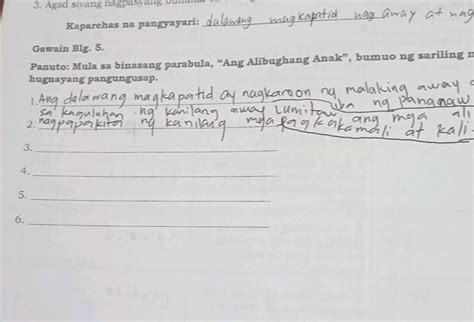 3. Agad siyang nagpasyang
Kaparehas na pangyayari: dalawang magkapatid nag away at nag
Gawain Blg. 5.
Panuto: Mula sa binasang parabula, "Ang Alibughang Anak", bumuo ng sariling
hugnayang pangungusap.
1. Ang dalawang magkapatid ay nagkaroon ng malaking away
sa kaguluhan ng kanilang away lumitaw ang mga
2. nagpapakita ng kanilang mga pagkakamali at
3.
4.
5.
6.